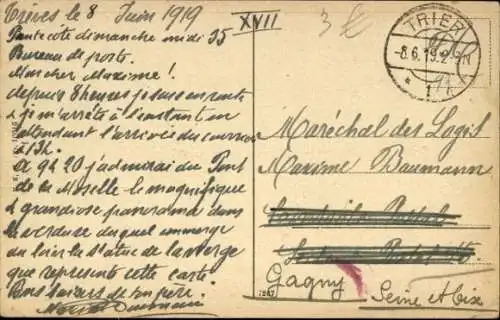 Trèves le 8 Juin 1919
XVII
3 €
Pentecôte dimanche midi 35
Bureau de poste.
Mon cher Maxime !
depuis 8 heures je suis en route
& je m'arrête à l'instant en
attendant l'arrivée du courrier
à 13h.
A 9h 20 j'admirai du Pont
de la Moselle le magnifique
& grandiose panorama dans
la verdure duquel émerge
au loin la Statue de la Vierge
que représente cette carte.
Bons baisers de ton père.
Baumann
TRIER
-8.6.19.2-3N
* 1 k
Maréchal des Logis
Maxime Baumann
Gagny
Seine et Oise